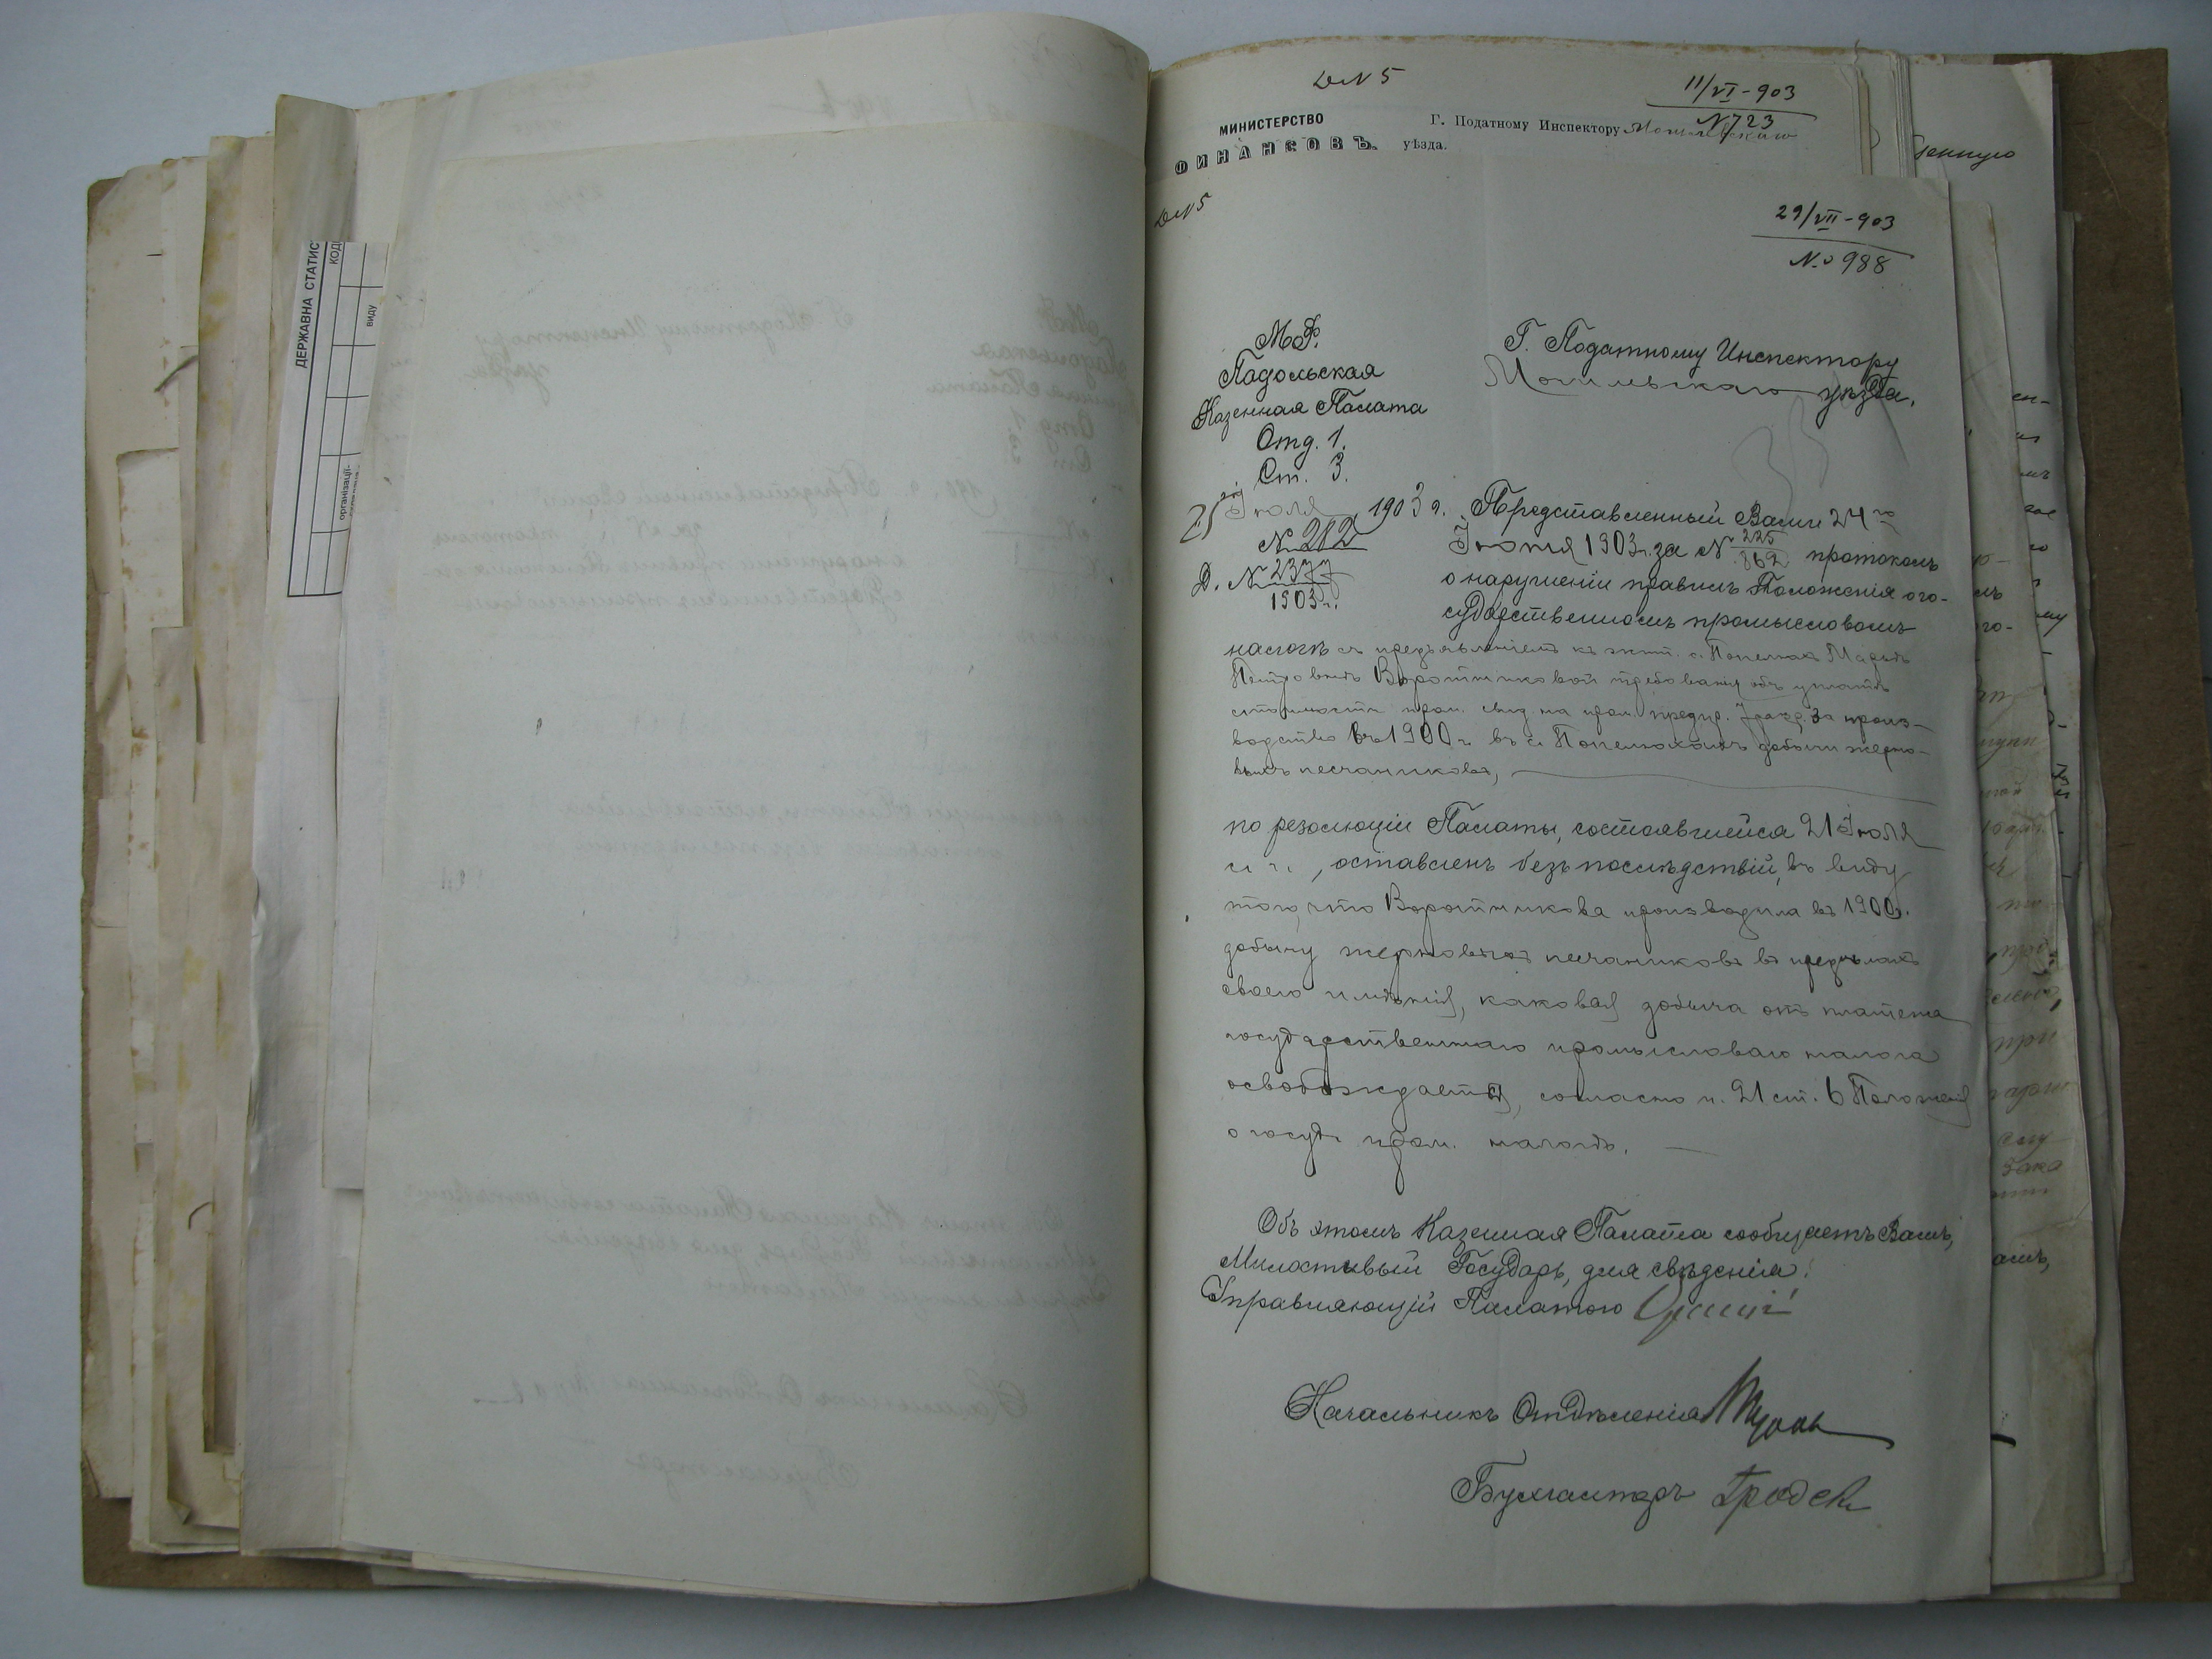 ДЕРЖАВНА СТАТИС
КОД
виду
організації-
Д№5
11/VI-903
№723
МИНИСТЕРСТВО
ФИНАНСОВЪ.
Г. Податному Инспектору Могилевскаго
уѣзда.
Д№5
29/VII-903
№ 988
М.Ф.
Подольская
Казенная Палата
Отд. 1.
Ст. 3.
25 Іюля 1903 г.
№ 282
Д. № 2377
1903 г.
Г. Податному Инспектору
Могилевскаго уѣзда.
Представленный Вами 24го
Іюня 1903 г. за № 225/862 протоколъ
о нарушеніи правилъ Положенія о го-
сударственномъ промысловомъ
налогѣ съ предъявленіемъ къ жит. с. Попелюхъ Марьѣ
Петровнѣ Воротниковой требованія объ уплатѣ
стоимости пром. свид. на пром. предпр. разр. за произ-
водство въ 1900 г. въ с. Попелюхахъ добычи жерно-
выхъ песчаниковъ,
по резолюціи Палаты, состоявшейся 21 Іюля
с. г., оставленъ безъ послѣдствій, въ виду
того, что Воротникова производила въ 1900 г.
добычу жерновыхъ песчаниковъ въ предѣлахъ
своего имѣнія, каковая добыча отъ платежа
государственнаго промысловаго налога
освобождается, согласно п. 21 ст. 6 Положенія
о госуд. пром. налогѣ.
Объ этомъ Казенная Палата сообщаетъ Вамъ,
Милостивый Государь, для свѣдѣнія.
Управляющій Палатою
Начальникъ Отдѣленія
Бухгалтеръ